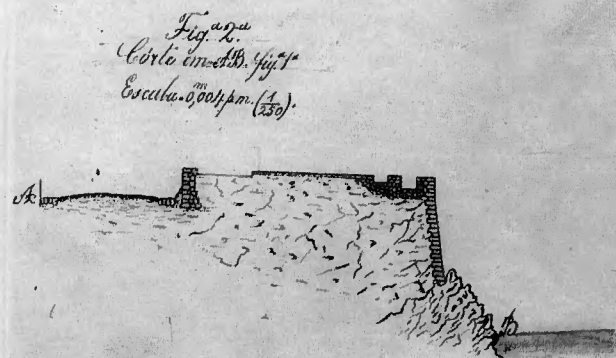 Fig.ª 2.ª
Córte em AB. fig.ª 1ª
Escala = 0,ᵐ004 p.m. (1/250).
A
B